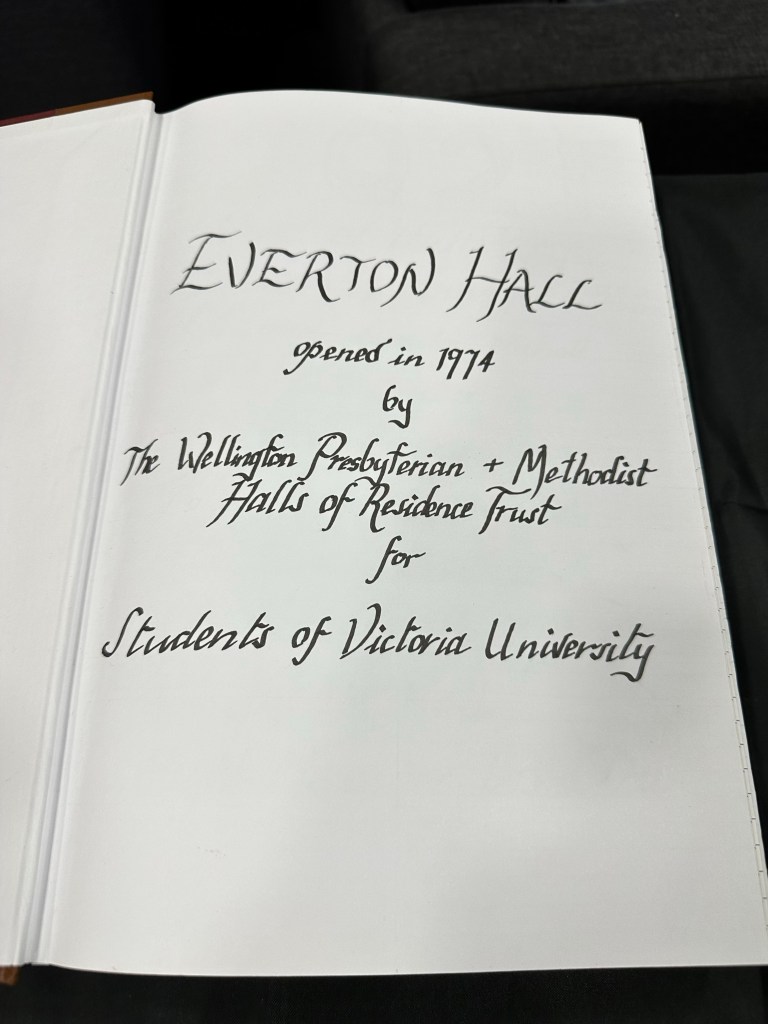 EVERTON HALL
opened in 1974
by
The Wellington Presbyterian + Methodist
Halls of Residence Trust
for
Students of Victoria University